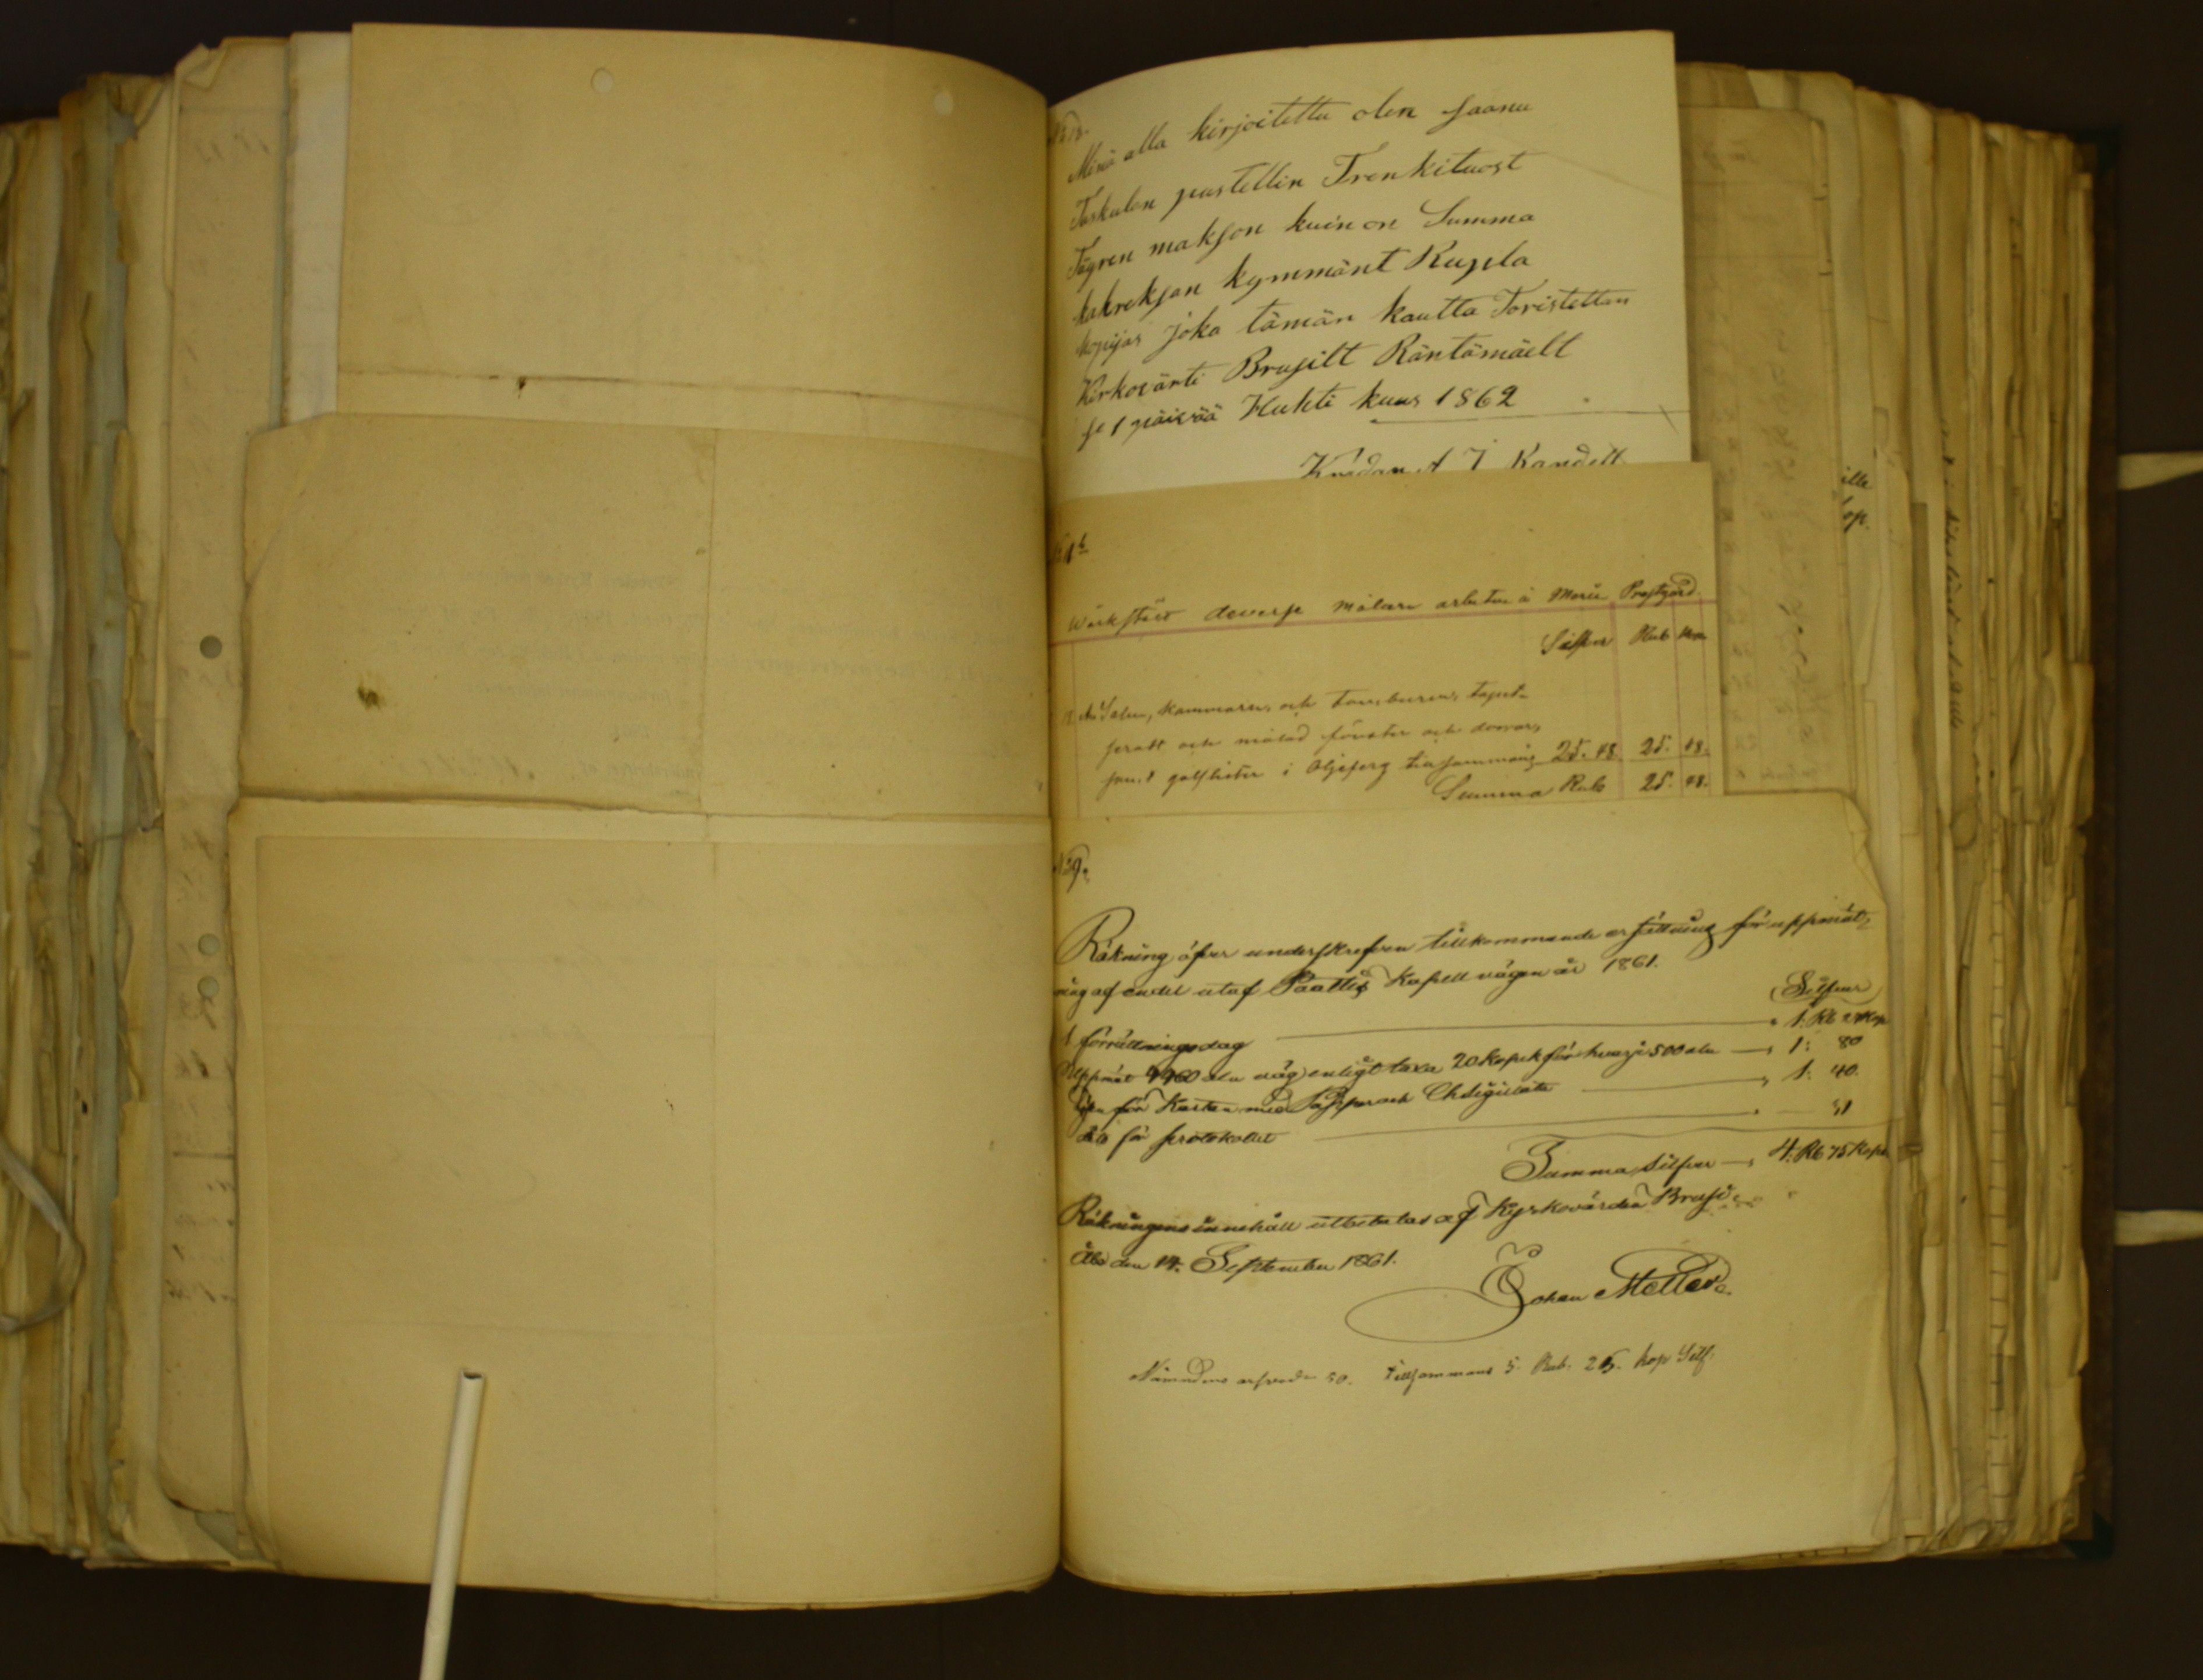 Minä alla kirjoitettu olen saanu
Taskulan pustellin Trenkituost
Tägren makson kuin on Summa
kahreksan kymmänt Kupila
kopijas joka tämän kautta Toristettan
Kirkovärti Brusilt Räntämäelt
se 1 päivää Huhti kuus 1862
A J Kandell
Wärkstält deverse målare arbeten å Marie Prostgård
Silfver Rub
Salen, kammaren och tamburen, tapet-
serat och målad fönster och dörrar,
samt golflister i Oljeferg tillsammans 25. 48. 25. 48.
Summa Rub 25. 48.
No 9.
Räkning öfver underskrefven tillkommande ersättning för uppmät,
ning af endel utaf Paattis Kapell vägen år 1861.
Silfver
1 förrättningsdag 1: Rb 24 Kop
Uppmät 4460 aln väg enligt taxa 20 Kopek för hvarje 500 aln 1: 80
för Kartan med Papper och Chartæ 1: 40.
d:o för protokollet 31
Summa silfver 4: Rb 75 Kopk
Räkningens innehåll utbetalas af Kyrkovärden Brusi.
Åbo den 14. September 1861.
Johan Meller
Nämndens arfvode 50. tillsammans 5. Rub. 25. kop Silf: